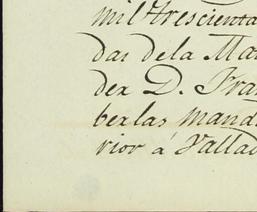 mil trescienta
das dela Mar
dex D. Fran
berlas mand
rior á Vallad